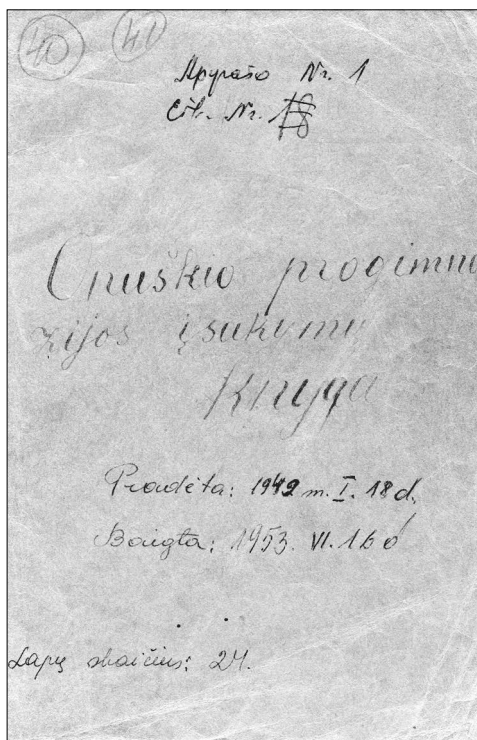 40 41
Apyrašo Nr. 1
Eil. Nr. 18
Onuškio progimna
zijos įsakymų
Knyga
Pradėta: 1949 m. I. 18 d.
Baigta: 1953. VI. 16 d
Lapų skaičius: 24.